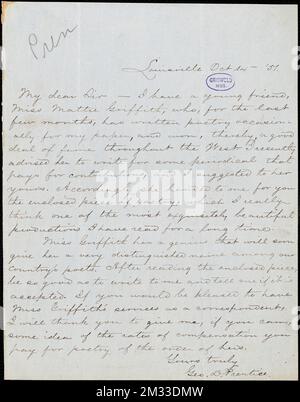 Pren
Louisville Oct 14 — '51.
GRISWOLD
MSS.
My dear Sir — I have a young friend,
Miss Mattie Griffith, who, for the last
few months, has written poetry occasion-
ally for my paper, and won, thereby, a good
deal of fame throughout the West. I recently
advised her to write for some periodical that
pays for contributions, and suggested to her
yours. Accordingly she handed to me for you
the enclosed piece of poetry which I really
think one of the most exquisitely beautiful
productions I have read for a long time.
Miss Griffith has a genius that will soon
give her a very distinguished name among our
country's poets. After reading the enclosed piece,
be so good as to write to me and tell me if it is
accepted. If you would be pleased to have
Miss Griffith's services as a correspondent,
I will thank you to give me, if you can,
some idea of the rates of compensation you
pay for poetry of the order of hers.
Yours truly
Geo. D. Prentice.
alamy
Image ID: 2M33DMW
www.alamy.com